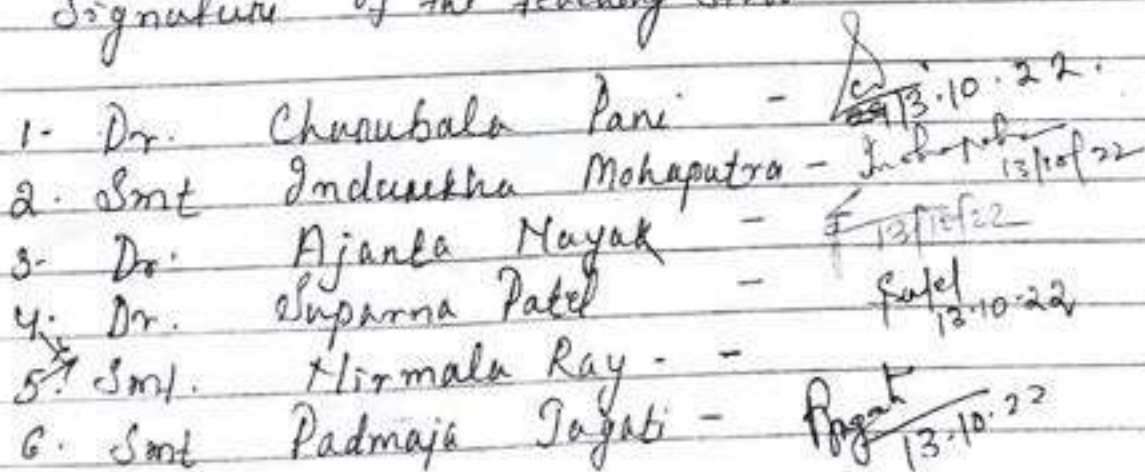 Signature of the teaching
1- Dr. Charubala Pani - 13.10.22.
2. Smt Indurekha Mohapatra - 13/10/22
3- Dr. Ajanta Nayak - 13/10/22
4. Dr. Suparna Patel - Patel 13.10.22
5. Smt. Nirmala Ray. -
6. Smt Padmaja Jagati - 13.10.22